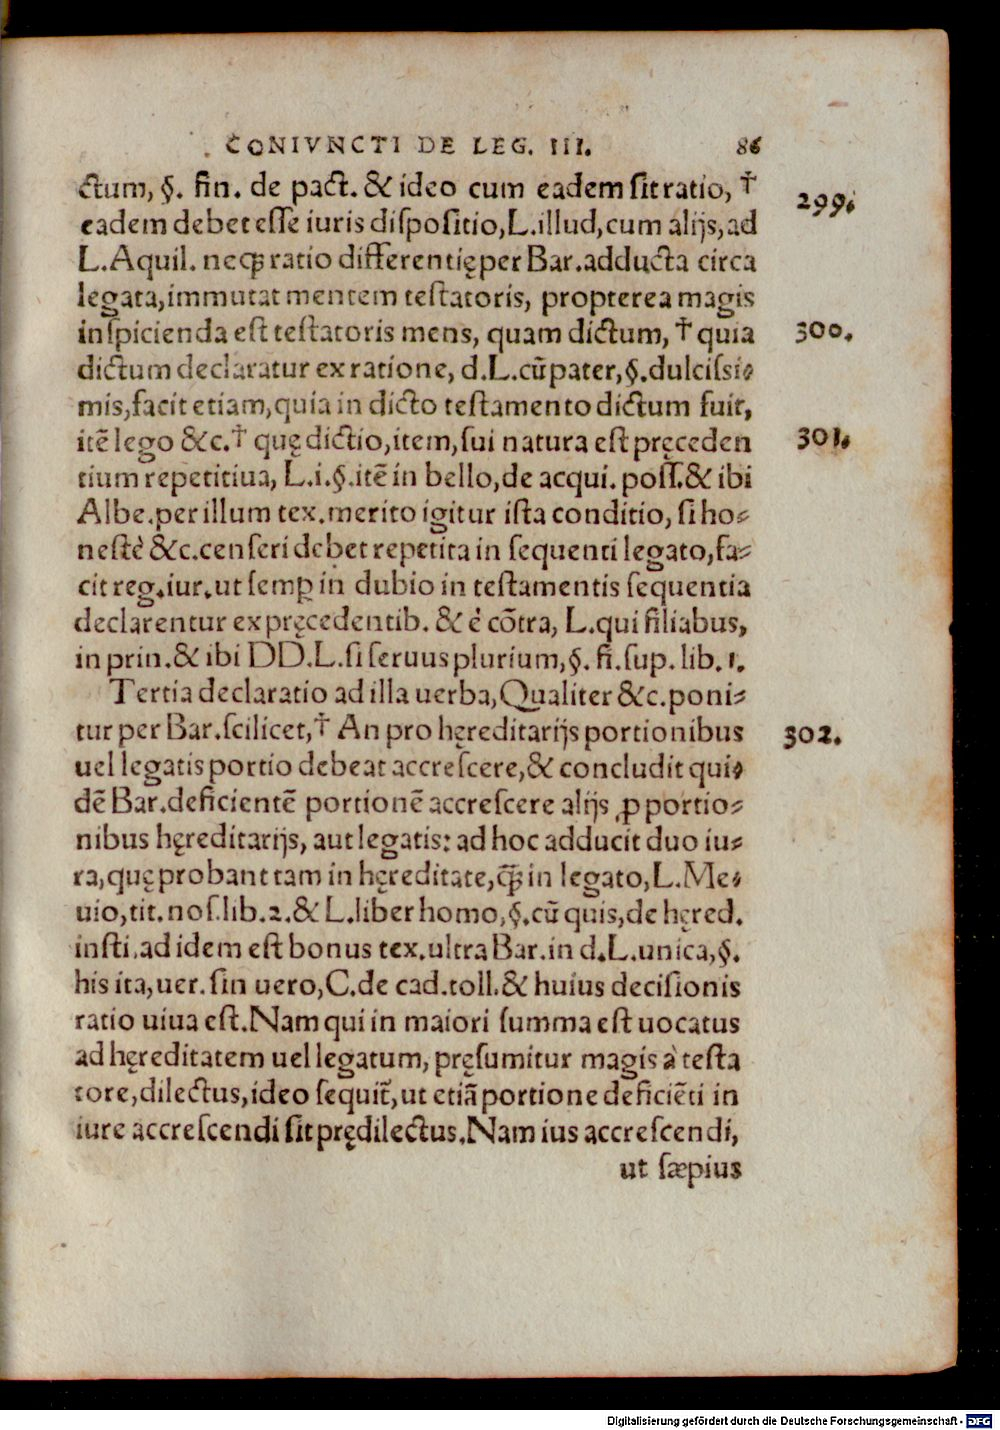 CONIVNCTI DE LEG. III. 86
ctum, §. fin. de pact. & ideo cum eadem sit ratio, †
299.
eadem debet esse iuris dispositio, L. illud, cum alijs, ad
L. Aquil. neqꝫ ratio differentię per Bar. adducta circa
legata, immutat mentem testatoris, propterea magis
inspicienda est testatoris mens, quam dictum, † quia
300.
dictum declaratur ex ratione, d. L. cũ pater, §. dulcissi-
mis, facit etiam, quia in dicto testamento dictum fuit,
itẽ lego &c. † quę dictio, item, sui natura est pręceden
301.
tium repetitiua, L. i. §. itẽ in bello, de acqui. poss. & ibi
Albe. per illum tex. merito igitur ista conditio, si ho-
nestè &c. censeri debet repetita in sequenti legato, fa-
cit reg. iur. ut semꝑ in dubio in testamentis sequentia
declarentur ex pręcedentib. & è cõtra, L. qui filiabus,
in prin. & ibi DD. L. si seruus plurium, §. fi. sup. lib. 1.
Tertia declaratio ad illa uerba, Qualiter &c. poni-
tur per Bar. scilicet, † An pro hęreditarijs portionibus
302.
uel legatis portio debeat accrescere, & concludit qui-
dẽ Bar. deficientẽ portionẽ accrescere alijs ꝓ portio-
nibus hęreditarijs, aut legatis: ad hoc adducit duo iu-
ra, quę probant tam in hęreditate, q̃ꝫ in legato, L. Me-
uio, tit. nos. lib. 2. & L. liber homo, §. cũ quis, de hęred.
insti. ad idem est bonus tex. ultra Bar. in d. L. unica, §.
his ita, uer. sin uero, C. de cad. toll. & huius decisionis
ratio uiua est. Nam qui in maiori summa est uocatus
ad hęreditatem uel legatum, pręsumitur magis à testa
tore, dilectus, ideo sequit̃, ut etiã portione deficiẽti in
iure accrescendi sit prędilectus. Nam ius accrescendi,
ut sæpius
Digitalisierung gefördert durch die Deutsche Forschungsgemeinschaft - DFG